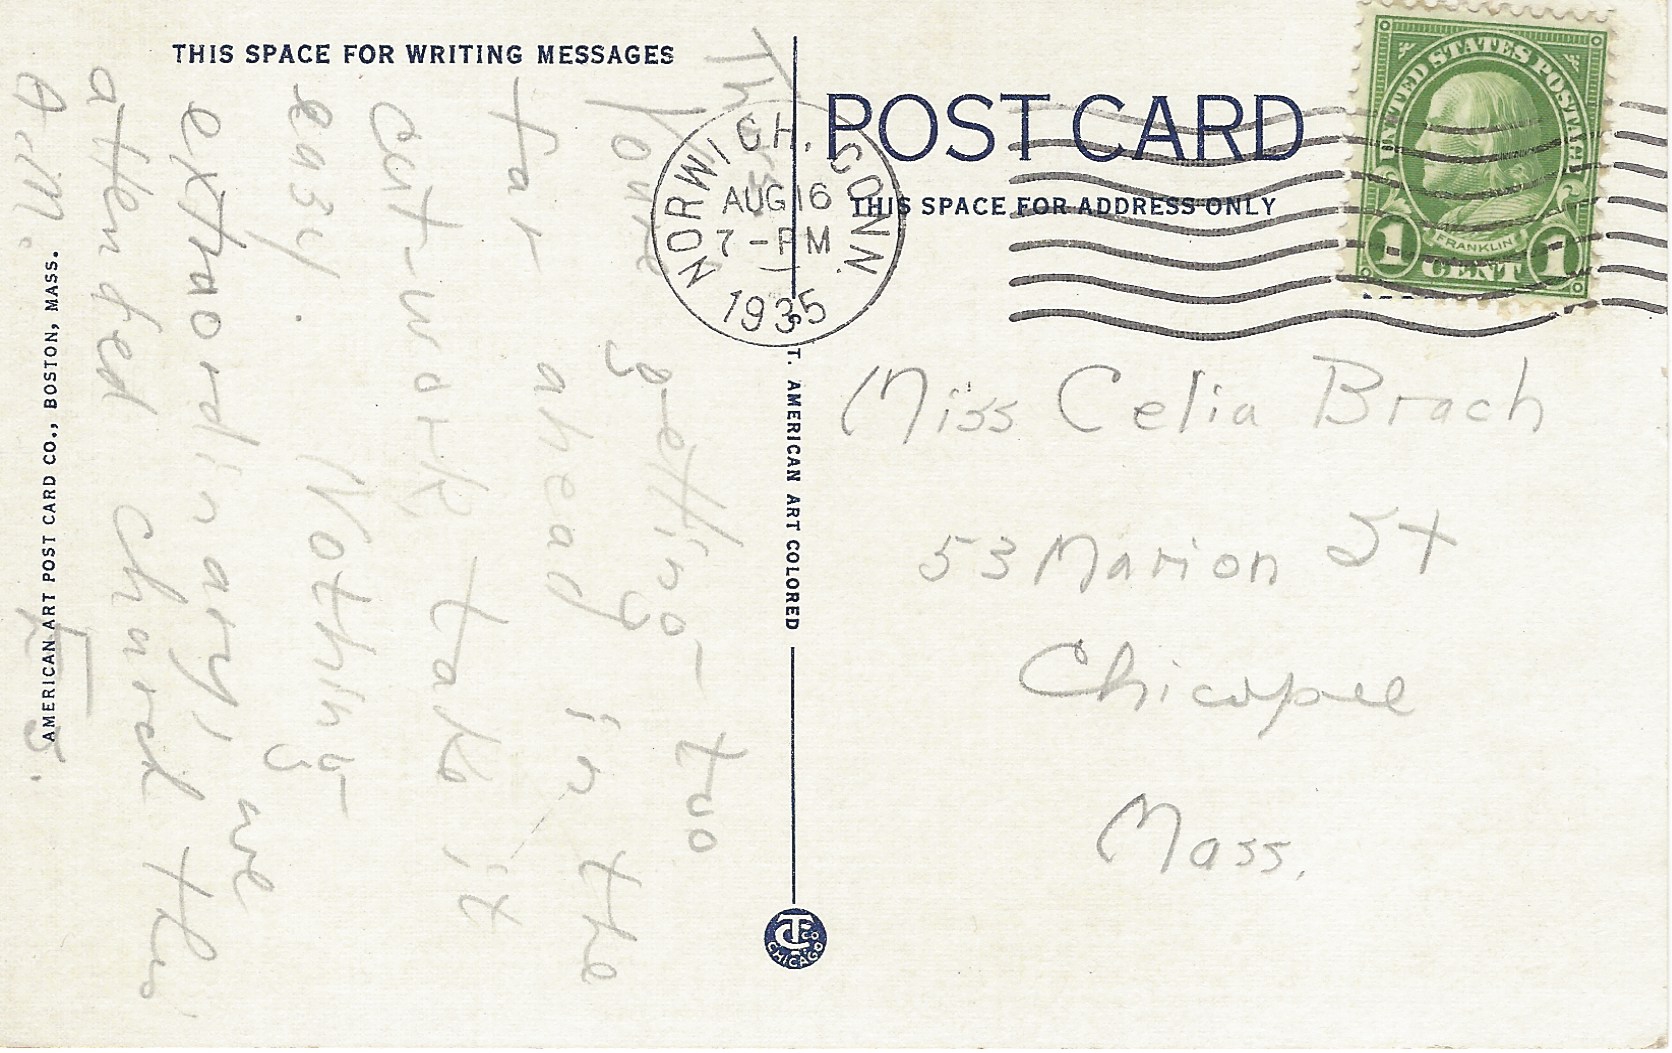 THIS SPACE FOR WRITING MESSAGES
POST CARD
THIS SPACE FOR ADDRESS ONLY
NORWICH, CONN.
AUG 16
7 - PM
1935
UNITED STATES POSTAGE
FRANKLIN
1 CENT 1
Thurs
Your getting too
far ahead in the
cut-work take it
easy. Nothing
extraordinary, we
attended church this
A.M.
E. S.
Miss Celia Brach
53 Marion St
Chicopee
Mass.
AMERICAN ART POST CARD CO., BOSTON, MASS.
T. AMERICAN ART COLORED
CT CO
CHICAGO